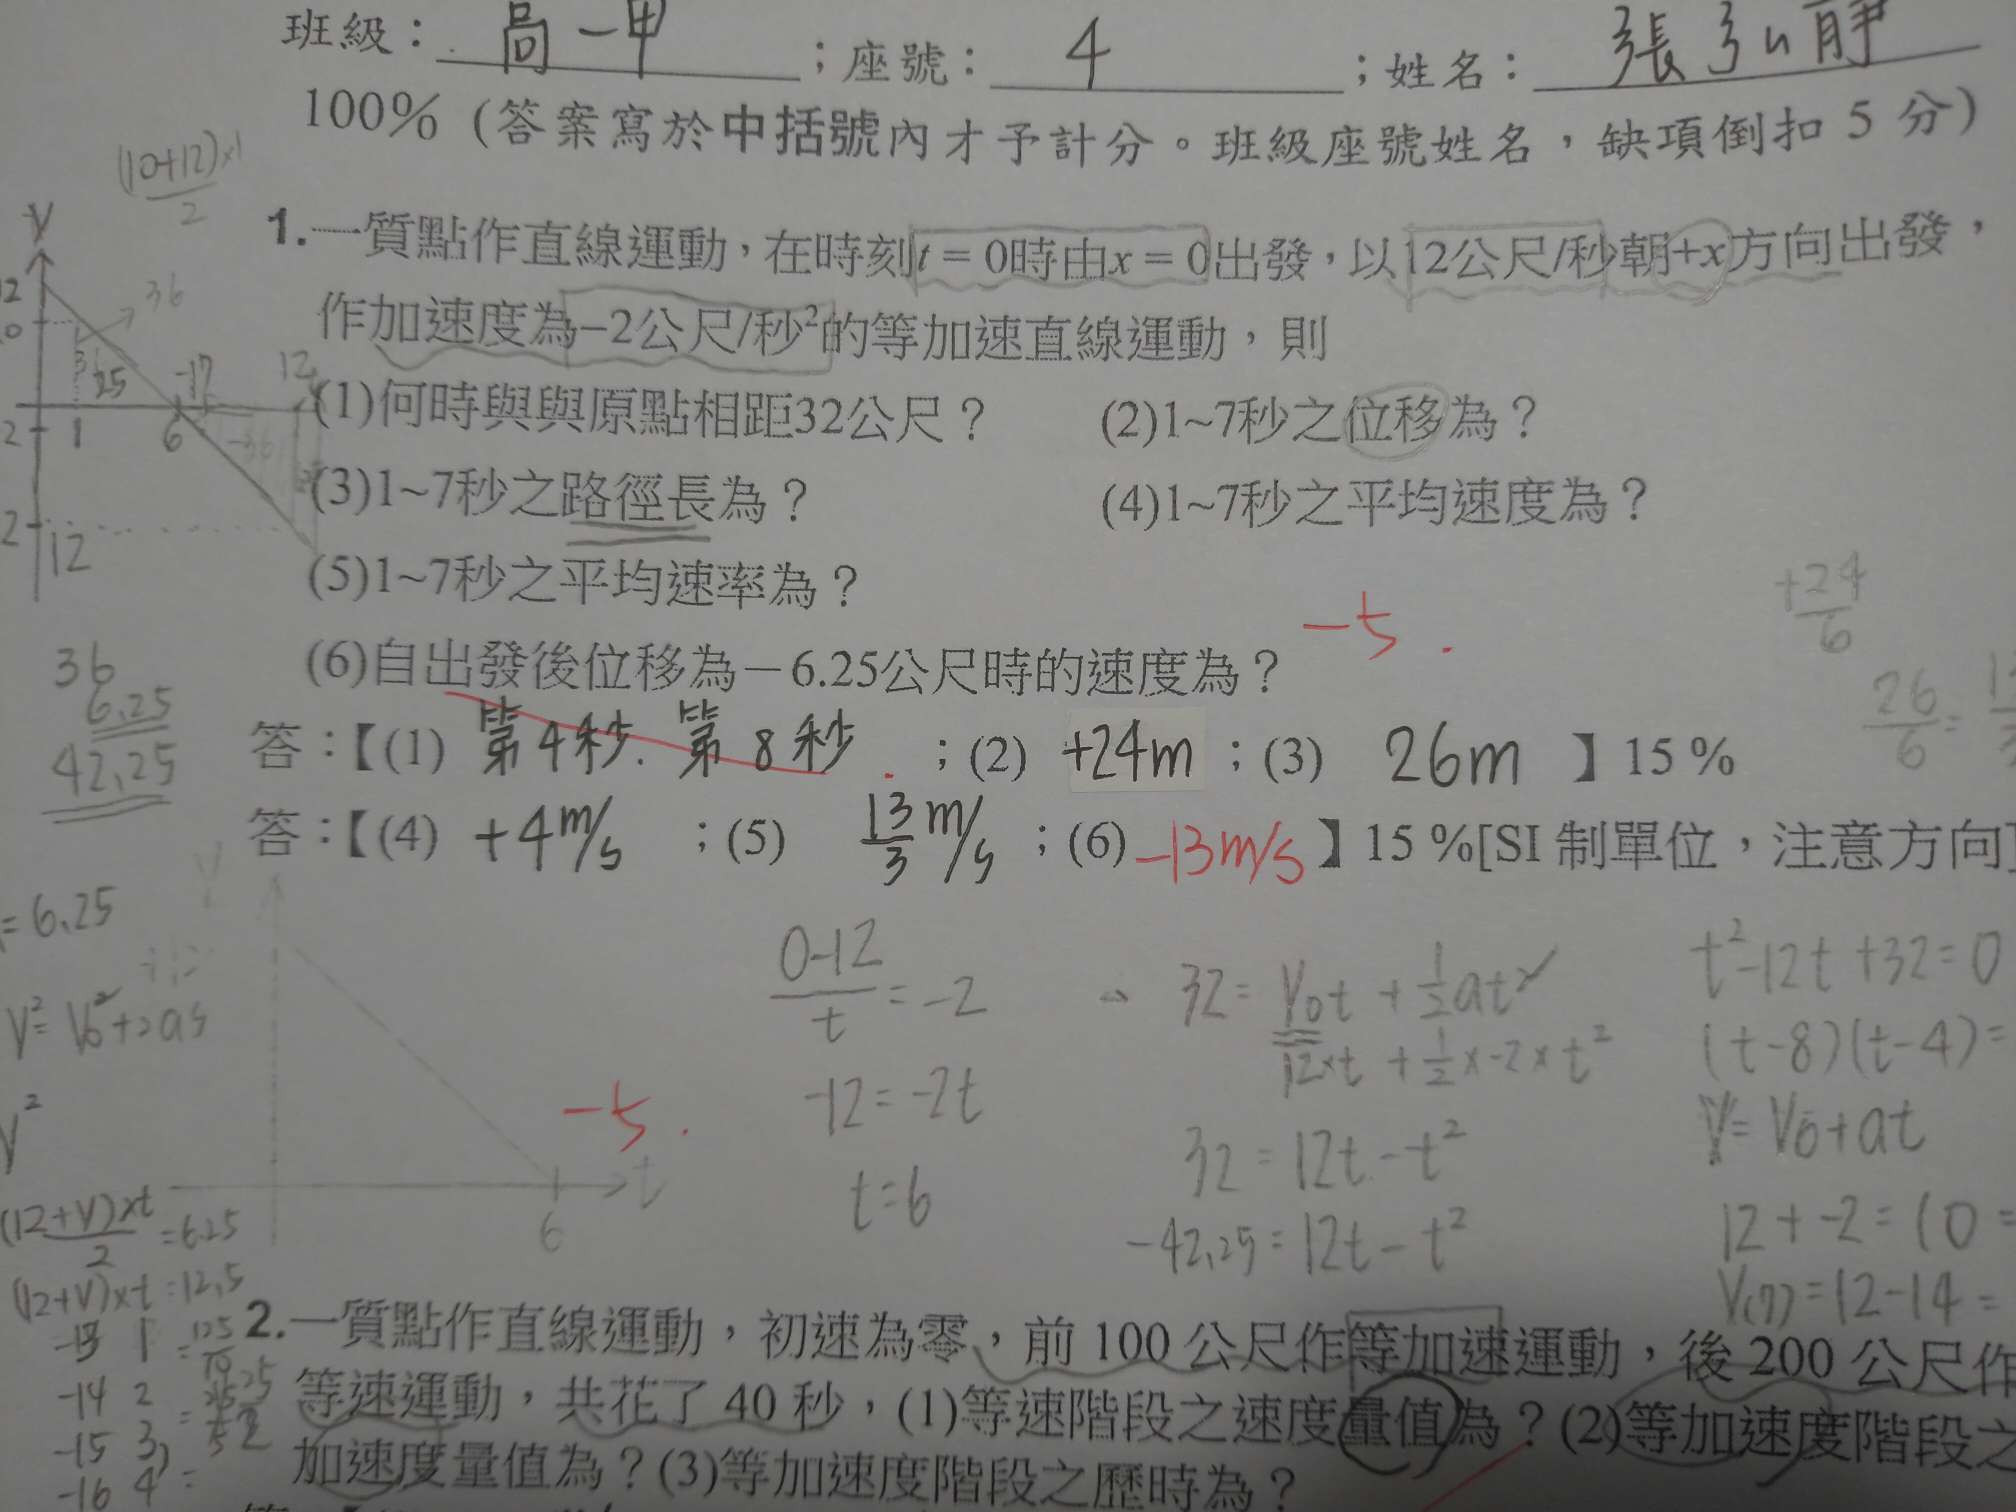 班級：高一甲；座號：4；姓名：張弘靜
100% (答案寫於中括號內才予計分。班級座號姓名，缺項倒扣 5 分)
(10+12)×1
2
1.一質點作直線運動，在時刻t = 0時由x = 0出發，以12公尺/秒朝+x方向出發，
作加速度為−2公尺/秒²的等加速直線運動，則
(1)何時與與原點相距32公尺？ (2)1~7秒之位移為？
(3)1~7秒之路徑長為？ (4)1~7秒之平均速度為？
(5)1~7秒之平均速率為？
(6)自出發後位移為－6.25公尺時的速度為？
-5.
V
12
36
25
12
1
6
-36
12
+24
6
26
6
=
36
6.25
42.25
答：【(1) 第4秒.第8秒 ；(2) +24m ；(3) 26m 】15 %
答：【(4) +4m/s ；(5) 13/3 m/s ；(6) -13m/s 】15 %[SI 制單位，注意方向]
= 6.25
V²=V0²+2as
V²
(12+V)×t
2
=6.25
(12+V)×t=12.5
-13 1
-14 2
-15 3
-16 4
-5.
t
6
0-12
t
= -2
-12=-2t
t=6
32= V0t + ½at²
12×t + ½×-2×t²
32=12t-t²
-42.25=12t-t²
t²-12t+32=0
(t-8)(t-4)=
V=V0+at
12+-2=10=
V(7)=12-14=
2.一質點作直線運動，初速為零，前 100 公尺作等加速運動，後 200 公尺作
等速運動，共花了 40 秒，(1)等速階段之速度量值為？(2)等加速度階段之
加速度量值為？(3)等加速度階段之歷時為？